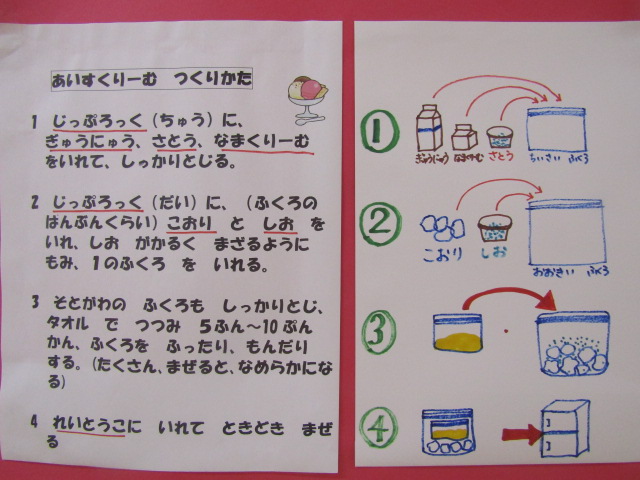 あいすくりーむ つくりかた
1 じっぷろっく(ちゅう)に、
ぎゅうにゅう、さとう、なまくりーむ
をいれて、しっかりとじる。
2 じっぷろっく(だい)に、(ふくろの
はんぶんくらい)こおり と しお を
いれ、しお がかるく まざるように
もみ、1のふくろ を いれる。
3 そとがわの ふくろも しっかりとじ、
タオル で つつみ 5ふん~10ぷん
かん、ふくろを ふったり、もんだり
する。(たくさん、まぜると、なめらかにな
る)
4 れいとうこに いれて ときどき まぜ
る
①
ぎゅうにゅう なまくりーむ さとう ちいさい ふくろ
②
こおり しお おおきい ふくろ
③
④